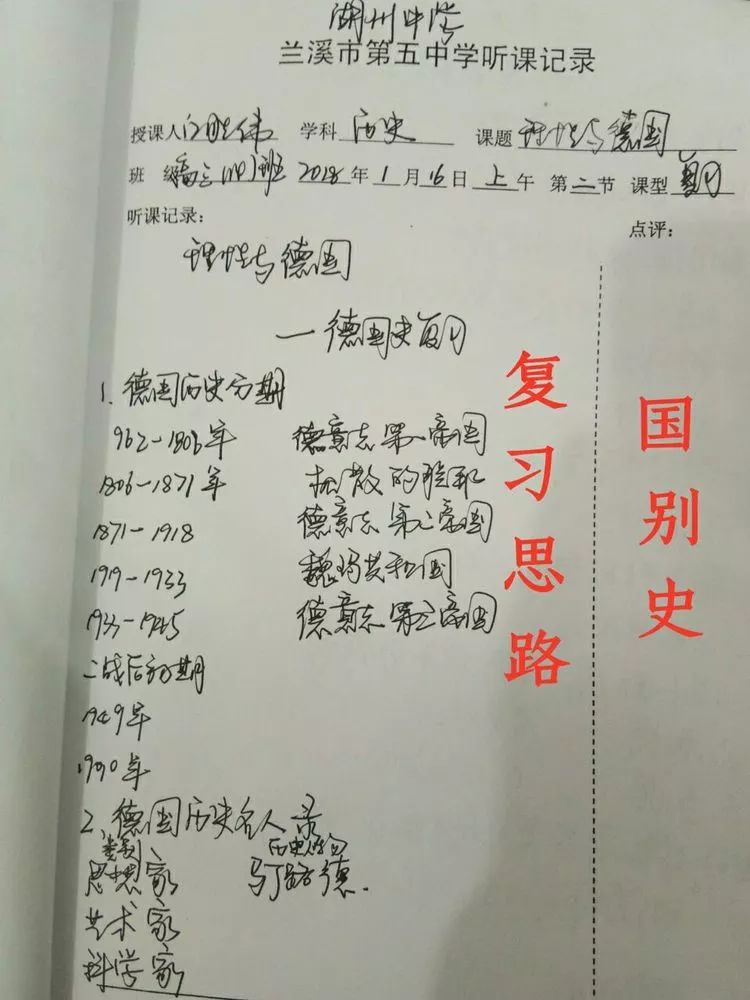 湖州中学
兰溪市第五中学听课记录
授课人 胜伟 学科 历史 课题 理性与德国
班 级 高三 班 2018 年 1 月 16 日 上 午 第 二 节 课型 复习
听课记录: 点评:
理性与德国
一 德国史复习
1、德国历史分期
962-1806年 德意志第一帝国
1806-1871年 松散的
1871-1918 德意志第二帝国
1919-1933 魏玛共和国
1933-1945 德意志第三帝国
二战后初期
1949年
1990年
2、德国历史名人录
类别 历史人物
思想家 马丁路德.
艺术家
科学家
复习思路
国别史